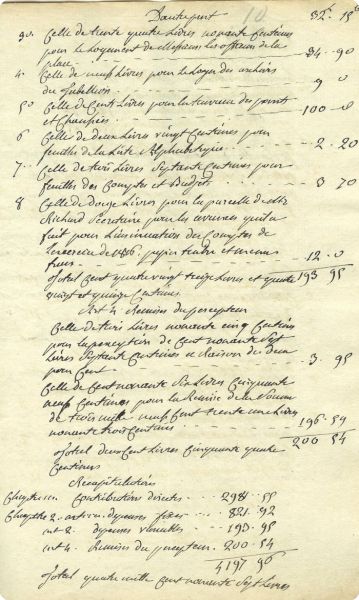 D'autre part 32 · 15
3o. Celle de trente quatre Livres nonante Centimes
pour le Logement de Messieurs Les officiers de la
place 34 · 90
4. Celle de neuf Livres pour le Loyer des archives
du Tabellion 9 · 0
5o Celle de Cent Livres pour les travaux des ponts
et Chaussées 100 · 0
6 Celle de deux Livres vingt Centimes pour
feuilles de la Liste Alphabétique 2 · 20
7. Celle de trois Livres Septante Centimes pour
feuilles des Comptes et Budgets 3 70
8 Celle de Douze Livres pour la parcelle de
Richard Secretaire pour les
fait pour L'insinuation des Comptes de
L'exercice de 1806, papier timbre et menus
frais 12 · 0
Total Cent quatre vingt treize Livres et 193 95
vingt et quinze Centimes
Art 4 Remises du percepteur
Celle de trois Livres nonante cinq Centimes
pour la perception de Cent nonante Sept
Livres Septante Centimes a Raison des Deux
pour Cent 3 · 95
Celle de Cent nonante Six Livres Cinquante
neuf Centimes pour la Remise de la Somme
de trois mille neuf Cent trente une Livres
nonante trois Centimes 196 · 59
Total deux Cent Livres Cinquante quatre 200 54
Centimes
Recapitulation
Chapitre 1er Contribution directes 2981 · 55
Chapitre 2. art 1er dépenses fixes 821 · 92
art 2. dépenses variables 193 · 95
art 4. Remises du percepteur 200 · 54
4197 96
Total quatre mille Cent nonante Sept Livres